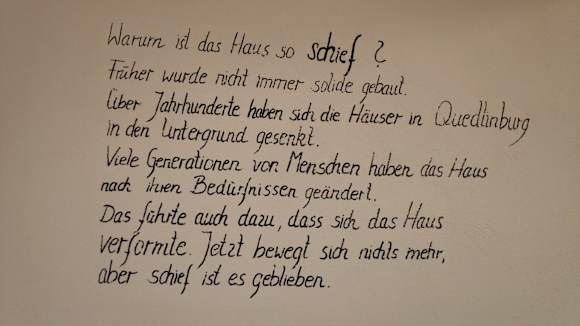 Warum ist das Haus so schief?
Früher wurde nicht immer solide gebaut.
Über Jahrhunderte haben sich die Häuser in Quedlinburg
in den Untergrund gesenkt.
Viele Generationen von Menschen haben das Haus
nach ihren Bedürfnissen geändert.
Das führte auch dazu, dass sich das Haus
verformte. Jetzt bewegt sich nichts mehr,
aber schief ist es geblieben.